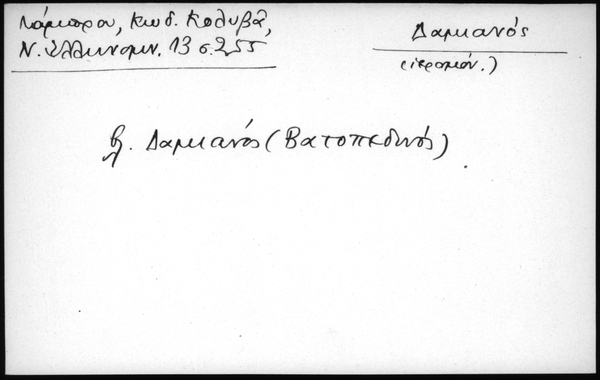 Λάμπρου, Κωδ. Κολυβᾶ,
Ν. Ἑλληνομν. 13 σ. 255
Δαμιανός
(ἱερομόν.)
βλ. Δαμιανός (Βατοπεδινός)